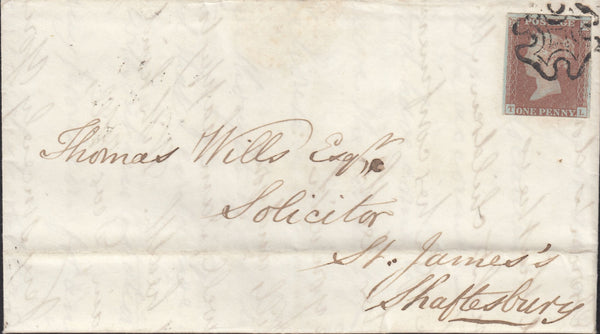 POSTAGE
ONE PENNY
L
Thomas Wills Esqr.
Solicitor
St. James's
Shaftesbury